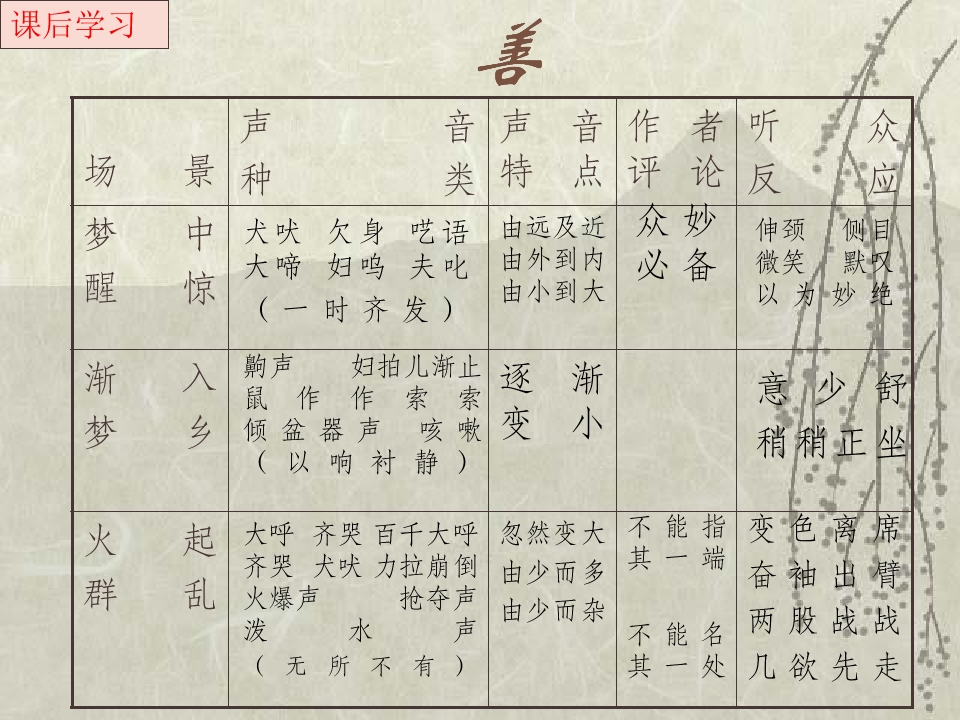 课后学习
善
场 景
声 音
种 类
声 音
特 点
作 者
评 论
听 众
反 应
梦 中
醒 惊
犬吠 欠身 呓语
大啼 妇呜 夫叱
（一时齐发）
由远及近
由外到内
由小到大
众妙
必备
伸颈 侧目
微笑 默叹
以为妙绝
渐 入
梦 乡
齁声 妇拍儿渐止
鼠作作索索
倾盆器声 咳嗽
（以响衬静）
逐 渐
变 小
意少舒
稍稍正坐
火 起
群 乱
大呼 齐哭 百千大呼
齐哭 犬吠 力拉崩倒
火爆声 抢夺声
泼水声
（无所不有）
忽然变大
由少而多
由少而杂
不能指
其一端
不能名
其一处
变色离席
奋袖出臂
两股战战
几欲先走